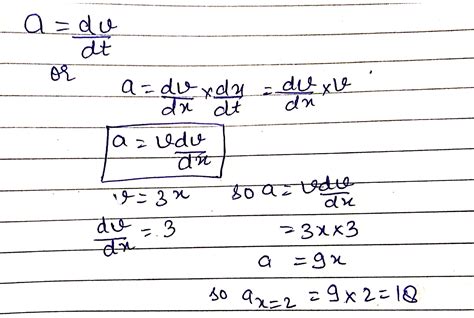 a = dv/dt
or
a = dv/dx × dx/dt = dv/dx × v
a = v dv/dx
v = 3x so a = v dv/dx
dv/dx = 3 = 3x × 3
a = 9x
so a_{x=2} = 9 × 2 = 18